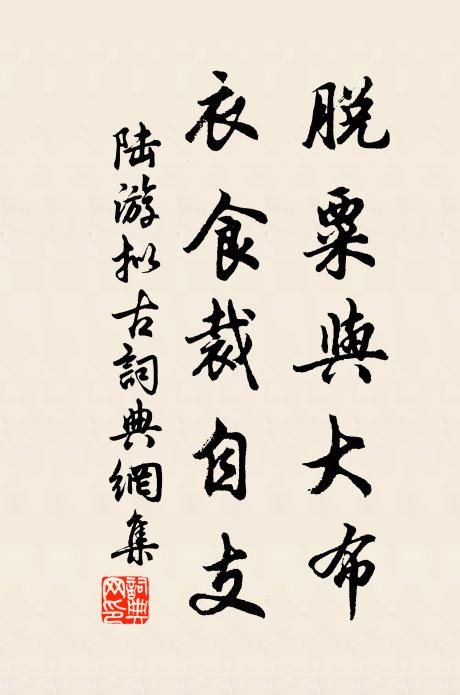 脱粟與大布
衣食裁自支
陸游拟古詞典網集
詞典网印